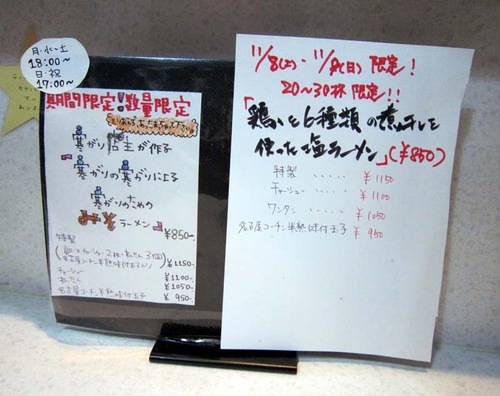 月・水〜土
18:00〜
日・祝
17:00〜
期間限定!数量限定
寒がり店主が作る
寒がりの寒がりによる
寒がりのための
ラーメン
¥850-
特製
¥1150-
チャーシュー
¥1100-
わんたん
¥1050-
名古屋コーチン半熟味付玉子
¥950-
11/8(土)・11/9(日)限定!
20〜30杯限定!!
「鶏いと6種類の煮干しを
使った塩ラーメン」(¥850)
特製 ‥‥‥ ¥1150
チャーシュー ‥‥‥ ¥1100
ワンタン ‥‥‥ ¥1050
名古屋コーチン半熟味付玉子 ¥950